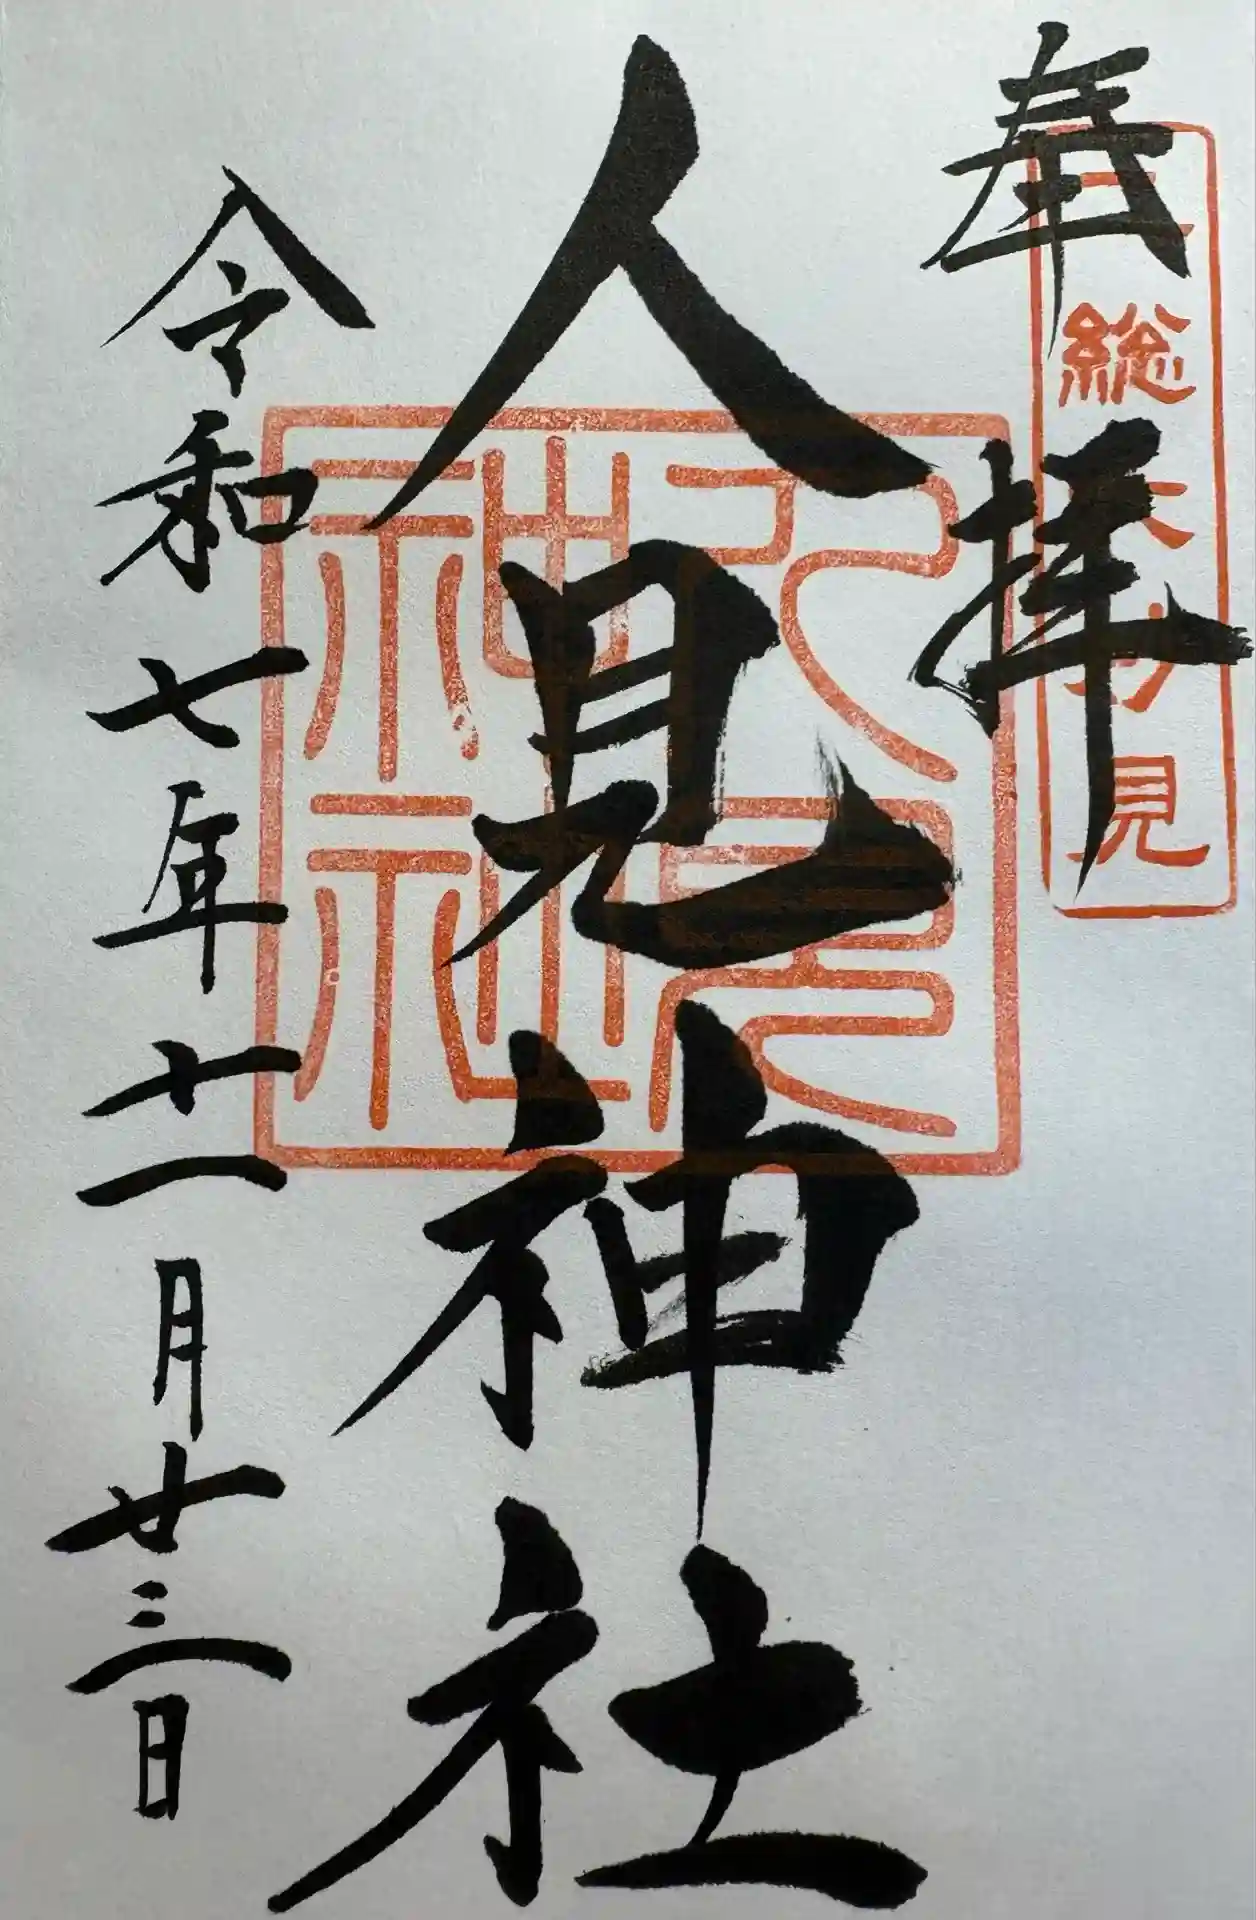 奉拝
総
妙見
人見神社
人見
神社
令和七年十一月廿三日